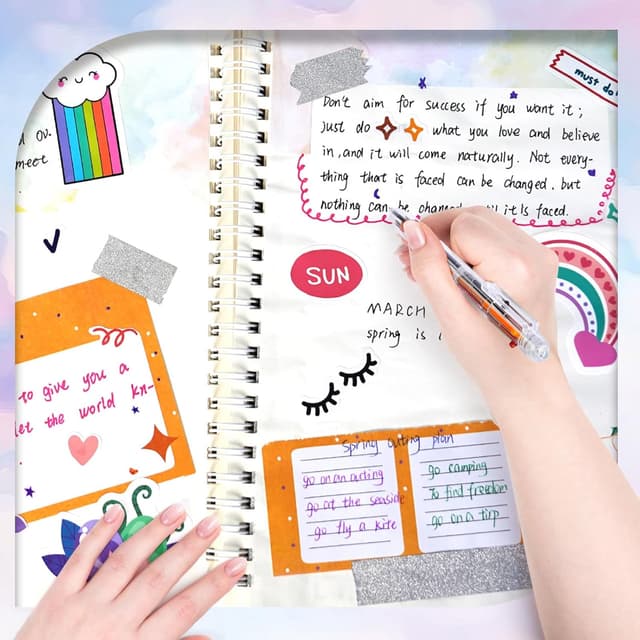 ou.
meet
to give you a
let the world kn-
must do
Don't aim for success if you want it;
just do what you love and believe
in, and it will come naturally. Not every-
thing that is faced can be changed. but
nothing can be it is faced.
SUN
MARCH
spring is
Spring outing plan
go on an outing
go at the seaside
go fly a kite
go camping
To find freedom
go on a tirp